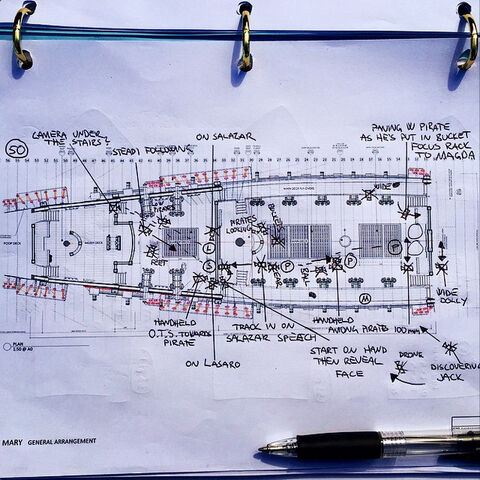 50
CAMERA UNDER
THE STAIRS
STEADI FOLLOWING
ON SALAZAR
PANING W PIRATE
AS HE'S PUT IN BUCKET
FOCUS RACK
TO MAGDA
WIDE
PIRATES
LOOKING
BUCKET
FEET
L
S
P
P
M
POOP DECK
WIDE
DOLLY
HANDHELD
O.T.S. TOWARDS
PIRATE
TRACK IN ON
SALAZAR SPEECH
HANDHELD
AMONG PIRATES 100mm
ON LASARO
START ON HAND
THEN REVEAL
FACE
DRONE
DISCOVERING
JACK
PLAN
1:50 @ A0
MARY GENERAL ARRANGEMENT